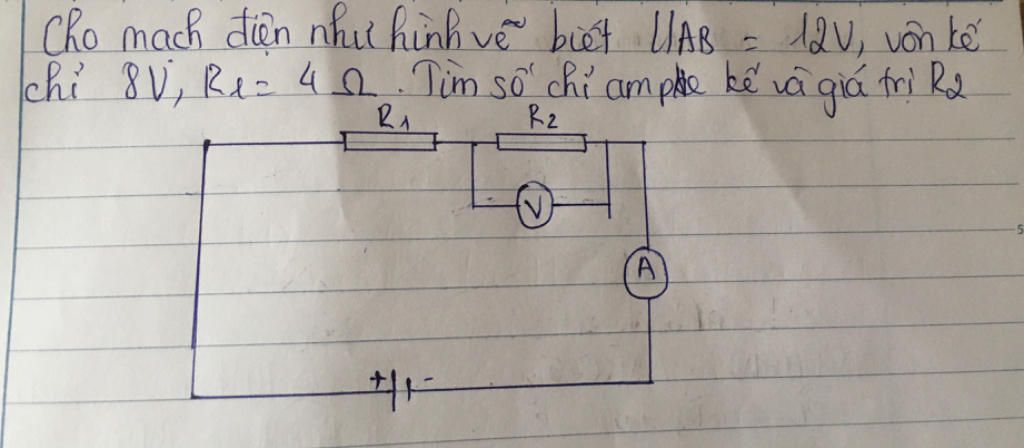 Cho mạch điện như hình vẽ biết UAB = 12V, vôn kế
chỉ 8V, R1 = 4 Ω. Tìm số chỉ ampe kế và giá trị R2
R1 R2
V
A
+ -
5